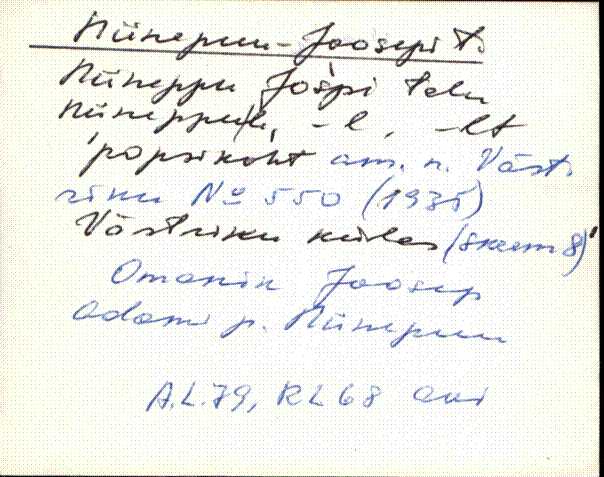 Niinepuu-Joosepi t.
Niineppu Jošpi talu
Niineppuh, -l, -lt
'popsikoht am. n. Väst-
riku № 550 (1935)
Västriku külas (skeem 8)'
Omanik Joosep
Adami p. Niinepuu
A.L.79, RL 68